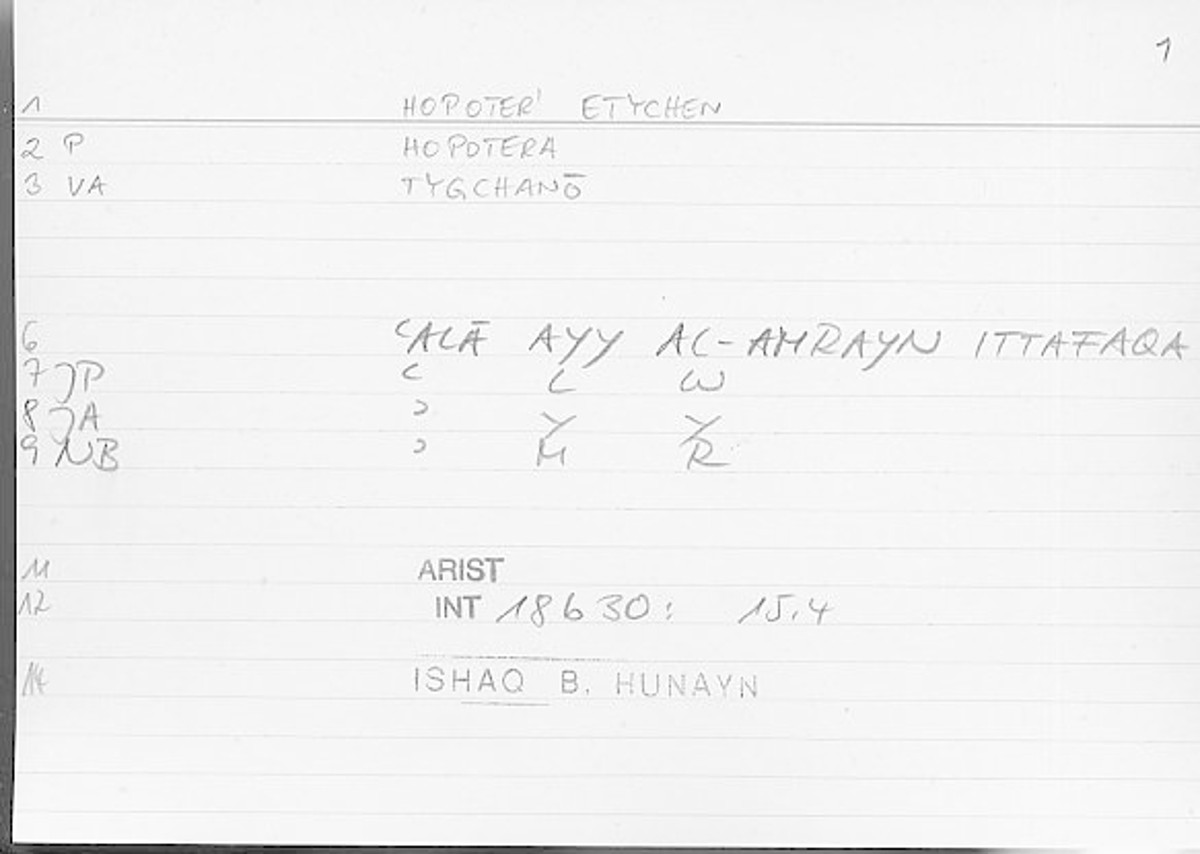 1
1 HOPOTER' ETYCHEN
2 P HOPOTERA
3 VA TYGCHANŌ
6 ʿALĀ AYY AL-AMRAYN ITTAFAQA
7 JP ʿ L W
8 JA ʾ Y Y
9 NB ʾ M R
11 ARIST
12 INT 18630: 15.4
14 ISHAQ B. HUNAYN